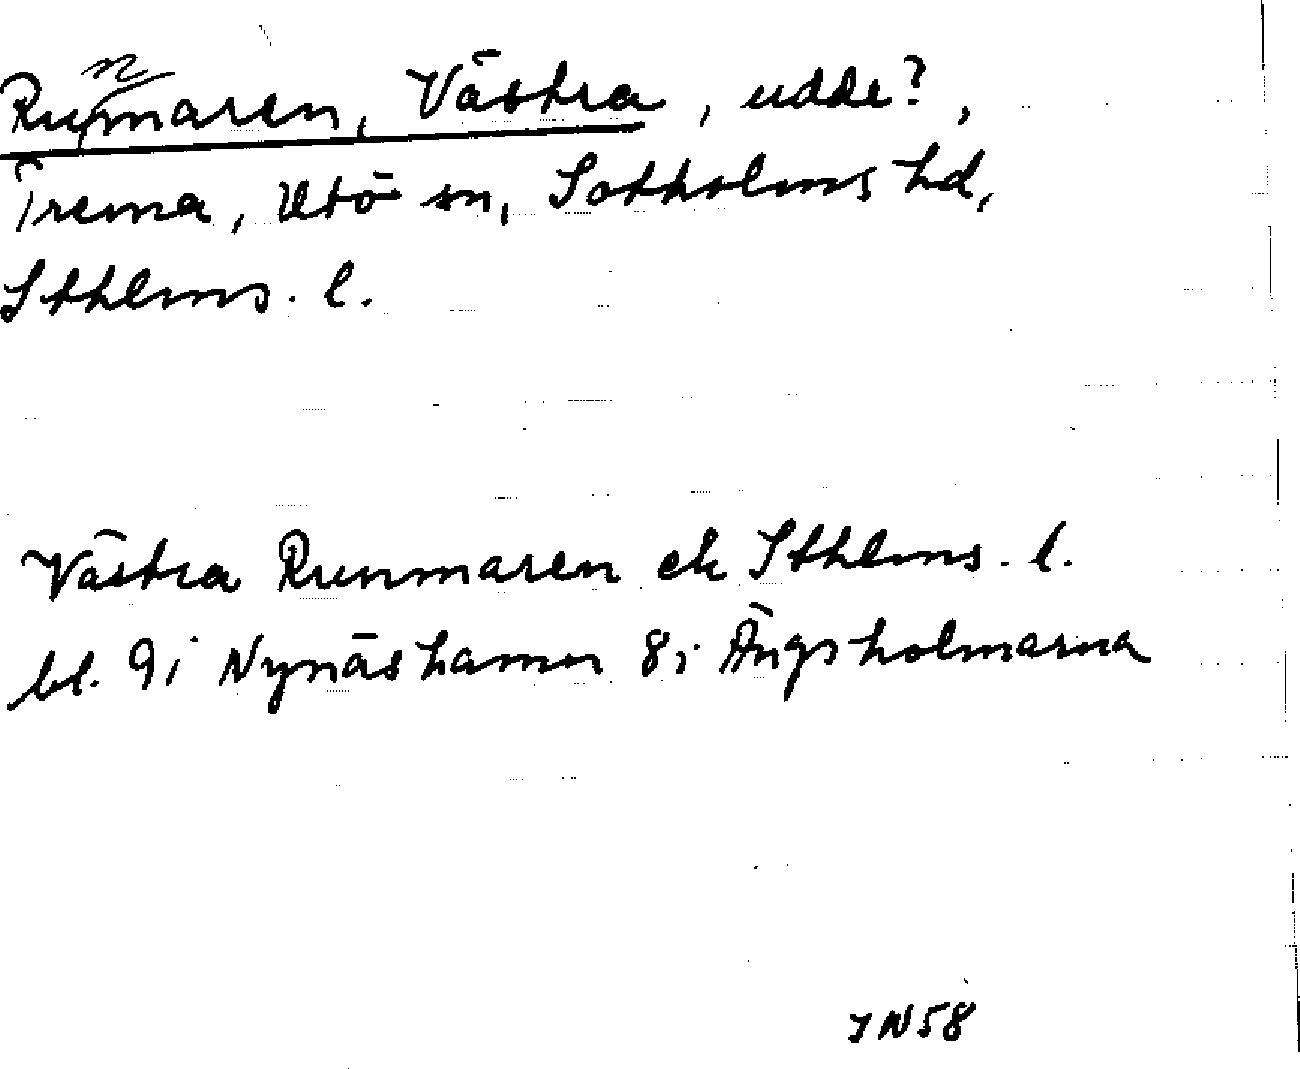 Runmaren, Västra, udde?,
Trema, Utö sn, Sotholms hd,
Sthlms. l.
Västra Runmaren ek Sthlms. l.
bl. 9i Nynäshamn 8i Ängsholmarna
IN58